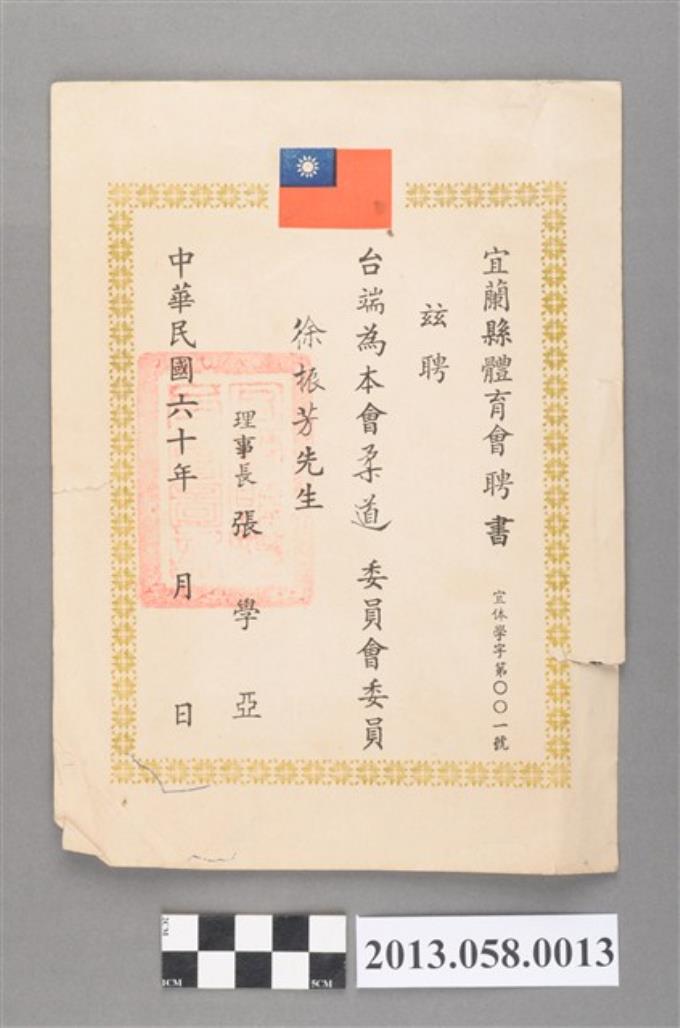 宜蘭縣體育會 聘書
宜体學字第〇〇一號
茲聘
台端為本會柔道 委員會委員
徐振芳先生
理事長 張學亞
中華民國六十年 月 日
2CM
1CM
5CM
2013.058.0013